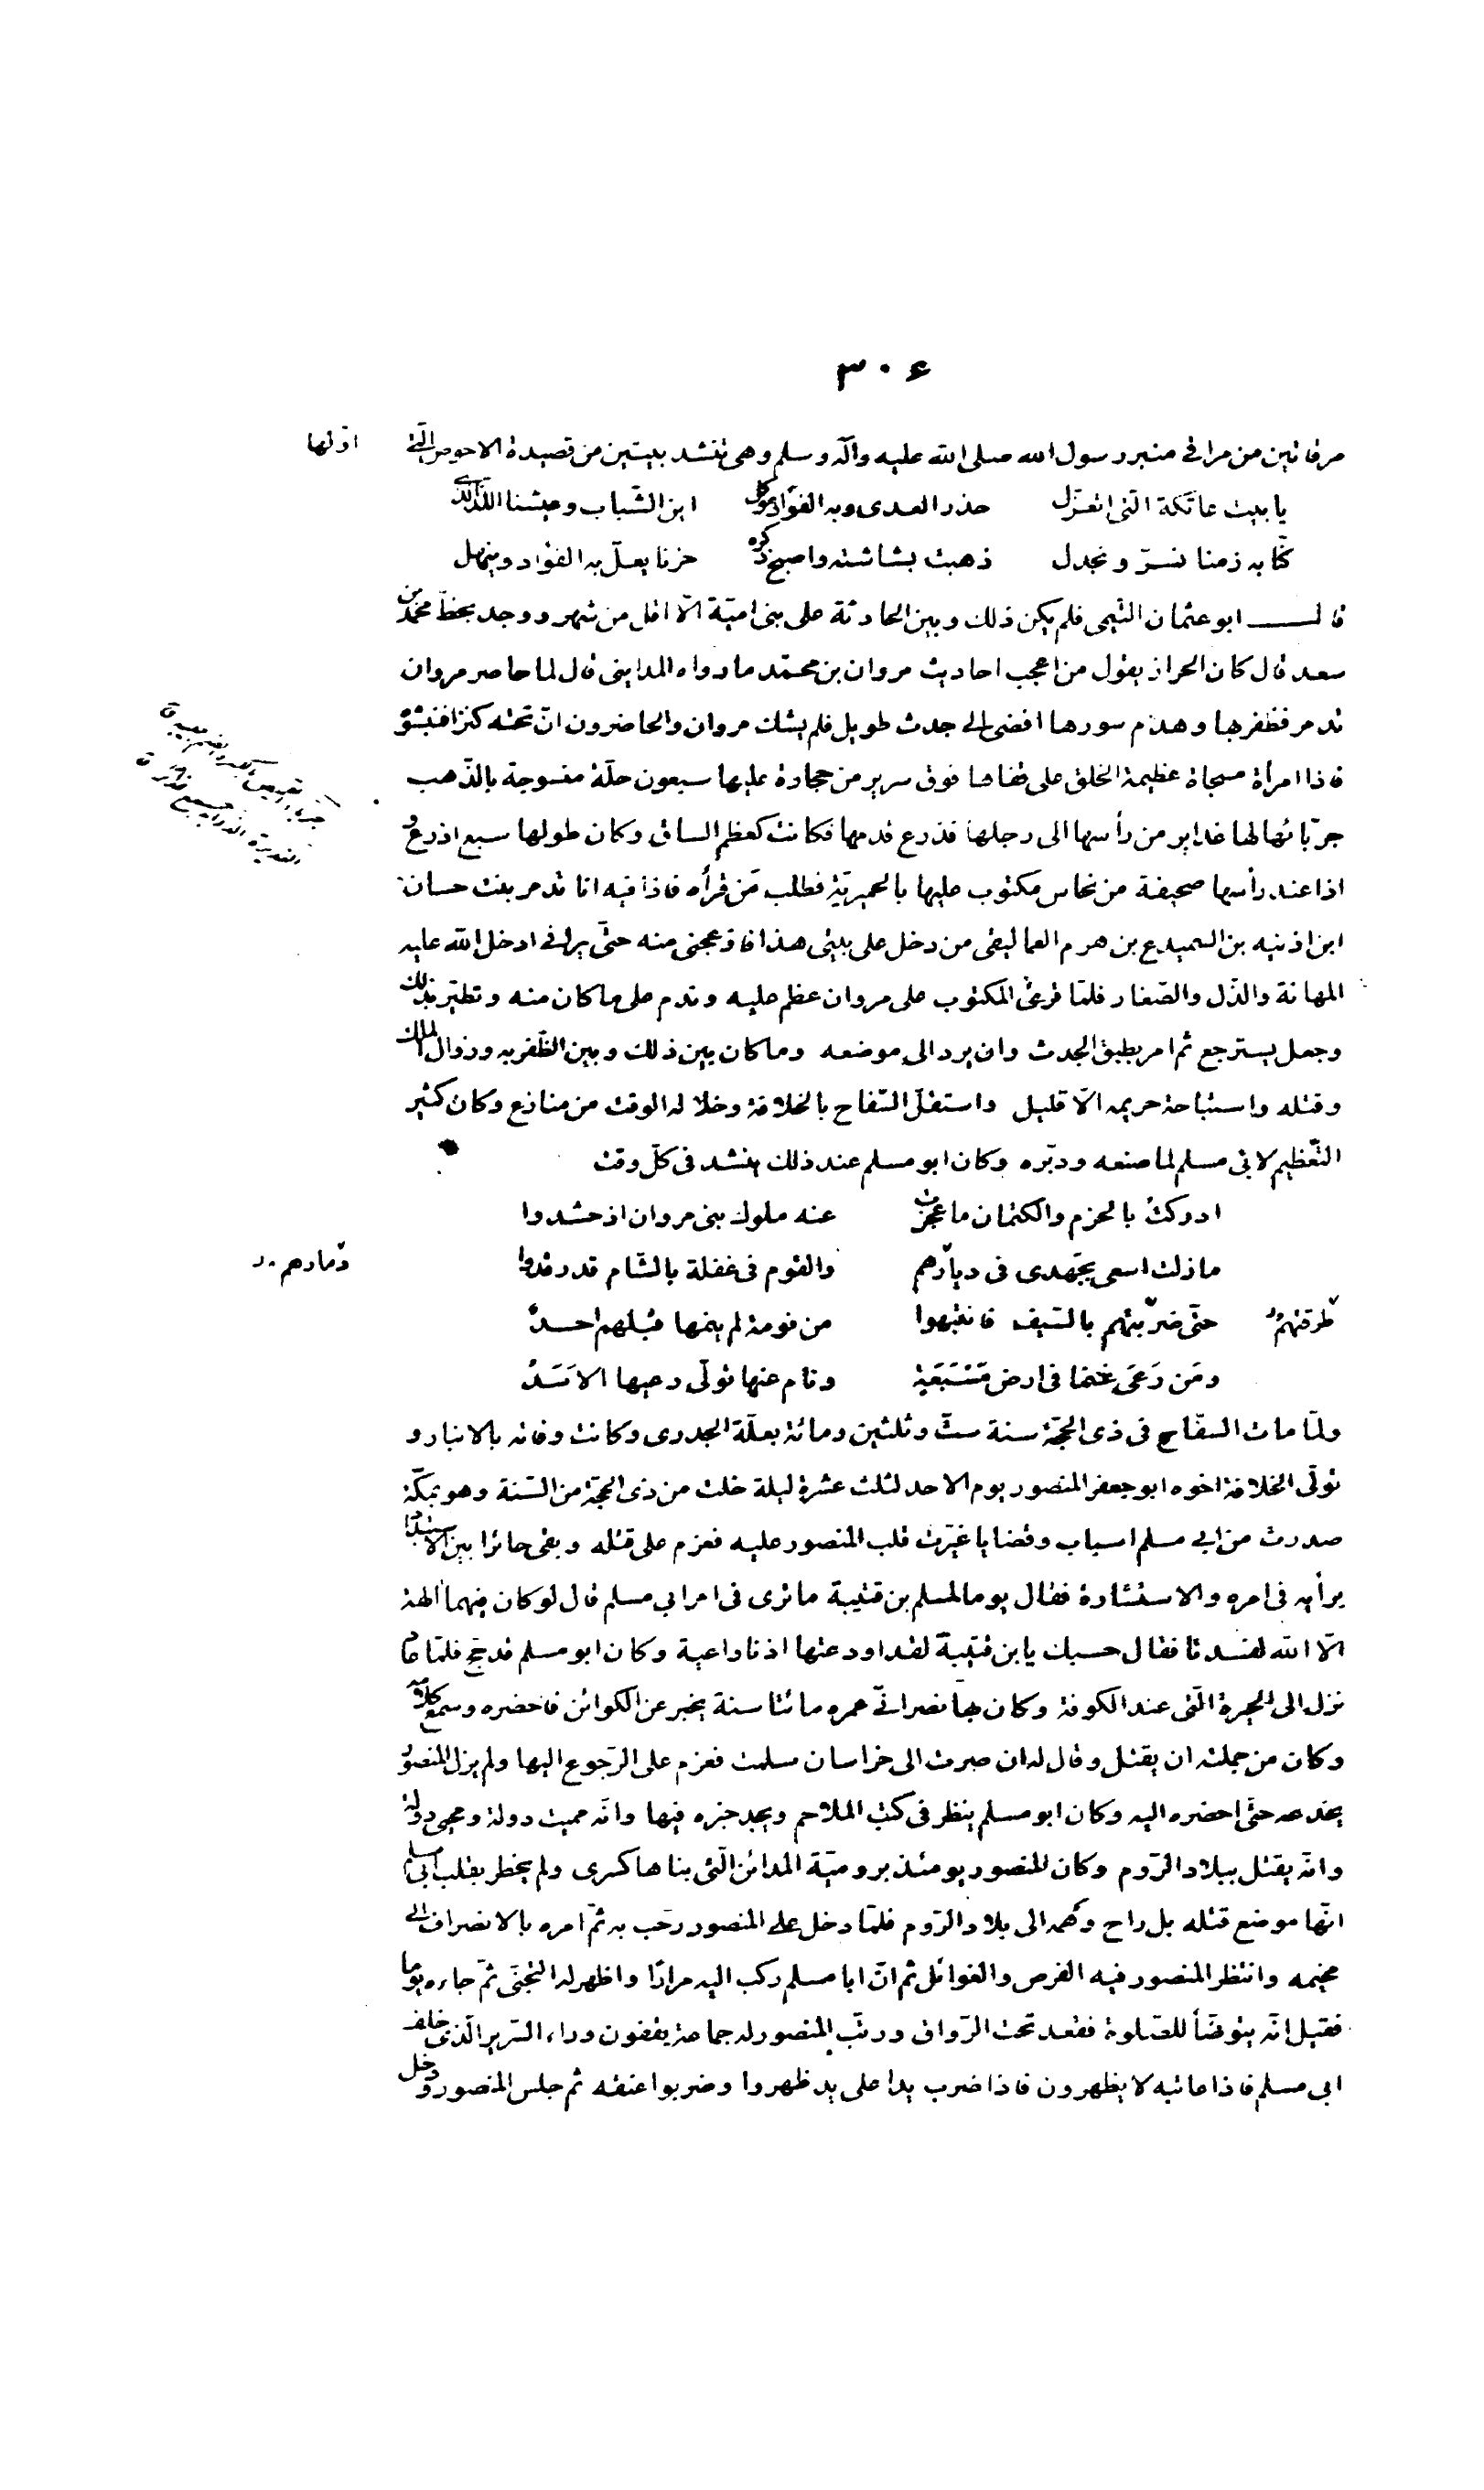 ۳۰۶
مرقاتين من مراقي منبر رسول الله صلى الله عليه وآله وسلم وهى تنشد بيتين من قصيدة الاحوص الّتى
اوّلها
يا بيت عاتكة الّتى اتعزّل حذر العدى وبه الفؤاد موكل اين الشّباب وعيشنا اللّذ الّذى
كنّا به زمنا نسرّ ونجدل ذهبت بشاشته واصبح ذكره حزنا يعلّ به الفؤاد وينهل
قال ابو عثمان التّيمى فلم يكن ذلك وبين الحادثة على بنى اميّة الّا اقل من شهر ووجد بخطّ محمّد بن
سعد قال كان الحراز يقول من اعجب احاديث مروان بن محمّد ما رواه المداينى قال لما حاصر مروان
تدمر فظفر بها وهدم سورها افضى الى جدث طويل فلم يشك مروان والحاضرون انّ تحته كنزا فنبشوه
فاذا امرأة مسجاة عظيمة الخلق على قفاها فوق سرير من حجارة عليها سبعون حلّة منسوجة بالذّهب
جربّانها لها غداير من رأسها الى رجلها فذرع قدمها فكانت كعظم الساق وكان طولها سبع اذرع و
اذا عند رأسها صحيفة من نحاس مكتوب عليها بالحميريّة فطلب مَن قرأه فاذا فيه انا تدمر بنت حسان
ابن اذنيه بن السميدع بن هرم العماليقى من دخل على بيتى هذا فازعجنى منه حتّى يرانى ادخل الله عليه
المهانة والذّل والصّغار فلمّا قرئ المكتوب على مروان عظم عليه وندم على ما كان منه وتطيّر بذلك
وجعل يسترجع ثم امر بطبق الجدث وان يرد الى موضعه وما كان بين ذلك وبين الظّفر به وزوال الملك
وقتله واستباحة حريمه الّا قليل واستقلّ السّفاح بالخلافة وخلا له الوقت من منازع وكان كثير
التّعظيم لابى مسلم لما صنعه ودبّره وكان ابو مسلم عند ذلك ينشد فى كلّ وقت
ادركت بالحزم والكتمان ما عجزت عنه ملوك بنى مروان اذ حشدوا
ما زلت اسعى بجهدى فى ديارهم والقوم فى غفلة بالشّام قد رقدوا
دمّارهم
طرقتهمُ
حتّى ضربتهم بالسّيف فانتبهوا من نومة لم ينمها قبلهم احدٌ
ومَن رَعَى غنما فى ارض مَسْبَعَةٍ ونام عنها تولّى رعيها الاَسَدُ
ولمّا مات السفّاح فى ذى الحجّة سنة ستّ وثلثين ومائة بعلّة الجدرى وكانت وفاته بالانبار و
تولّى الخلافة اخوه ابو جعفر المنصور يوم الاحد لثلث عشرة ليلة خلت من ذى الحجّة من السّنة وهو بمكّة
صدرت من ابى مسلم اسباب وقضايا غيّرت قلب المنصور عليه فعزم على قتله وبقى حائرا بين الاستبداد
برأيه فى امره والاستشارة فقال يوما لمسلم بن قتيبة ما ترى فى امر ابى مسلم قال لو كان فيهما آلهة
الّا الله لفسدتا فقال حسبك يا بن قتيبة لقد اودعتها اذنا واعية وكان ابو مسلم قد حجّ فلمّا عاد
نزل الى الحيرة الّتى عند الكوفة وكان بها نصرانىّ عمره مائتا سنة يخبر عن الكوائن فاحضره وسمع كلامه
وكان من جملته ان يقتل وقال له ان صرت الى خراسان سلمت فعزم على الرّجوع اليها ولم يزل المنصور
يخدعه حتّى احضره اليه وكان ابو مسلم ينظر فى كتب الملاحم ويجد خبره فيها وانّه مميت دولة ومحيى دولة
وانّه يقتل ببلاد الرّوم وكان المنصور يومئذ بروميّة المدائن الّتى بناها كسرى ولم يخطر بقلب ابى مسلم
انّها موضع قتله بل راح وهمه الى بلاد الرّوم فلمّا دخل على المنصور رحّب به ثمّ امره بالانصراف الى
مخيمه وانتظر المنصور فيه الفرص والغوائل ثم انّ ابا مسلم ركب اليه مرارًا واظهر له التجنّى ثمّ جاءه يوما
فقيل انّه يتوضّأ للصّلوة فقعد تحت الرّواق ورتّب المنصور له جماعة يقفون وراء السّرير الّذى خلف
ابى مسلم فاذا عاتبه لا يظهرون فاذا ضرب يدا على يد ظهروا وضربوا عنقه ثم جلس المنصور ودخل